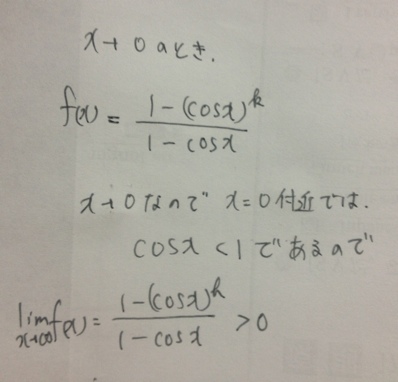 x→0のとき.
f(x) = \frac{1-(cosx)^k}{1-cosx}
x→0なので x=0付近では.
cosx<1であるので
\lim_{x→∞} f(x) = \frac{1-(cosx)^k}{1-cosx} >0